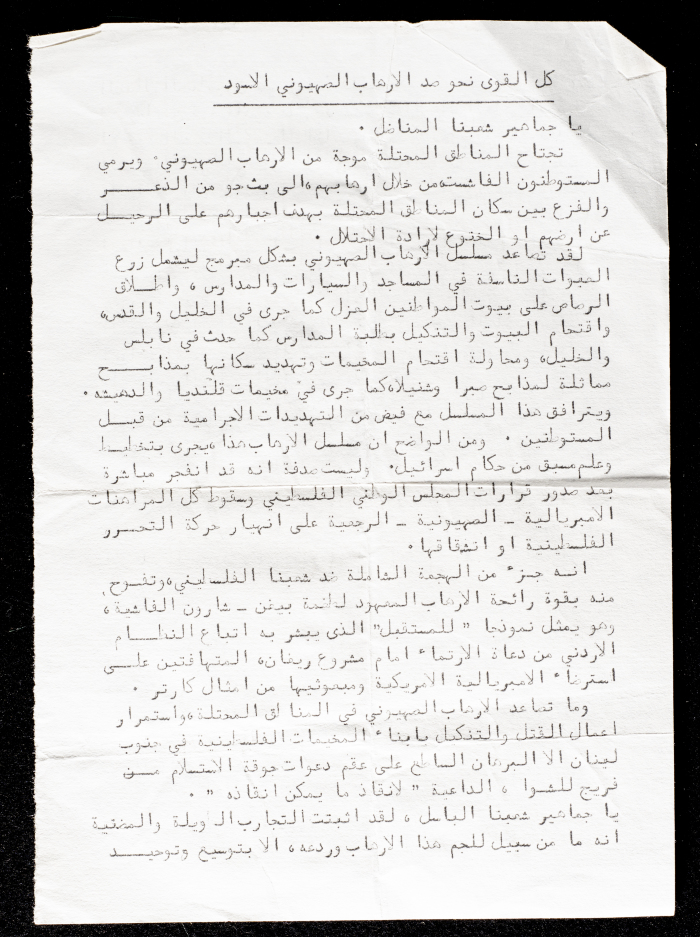 كل القوى نحو صد الارهاب الصهيوني الاسود
يا جماهير شعبنا المناضل .
تجتاح المناطق المحتلة موجة من الارهاب الصهيوني. ويرمي
المستوطنون الفاشست، من خلال ارهابهم، الى بث جو من الذعـــر
والفزع بين سكان المناطق المحتلة بهدف اجبارهم على الرحيـل
عن ارضهم او الخنوع لارادة الاحتلال .
لقد تصاعد مسلسل الارهاب الصهيوني بشكل مبرمج ليشمل زرع
العبوات الناسفة في المساجد والسيارات والمدارس ، واطـــلاق
الرصاص على بيوت المواطنين العزل كما جرى في الخليل والقدس،
واقتحام البيوت والتنكيل بطلبة المدارس كما حدث في نابلس
والخليل، ومحاولة اقتحام المخيمات وتهديد سكانها بمذابـــح
مماثلة لمذابح صبرا وشتيلا، كما جرى في مخيمات قلنديا والدهيشه .
ويترافق هذا المسلسل مع فيض من التهديدات الاجرامية من قبــل
المستوطنين . ومن الواضح ان مسلسل الارهاب هذا، يجرى بتخطيـط
وعلم مسبق من حكام اسرائيل. وليست صدفة انه قد انفجر مباشرة
بعد صدور قرارات المجلس الوطني الفلسطيني وسقوط كل المراهنات
الامبريالية ـ الصهيونية ـ الرجعية على انهيار حركة التحــرر
الفلسطينية او انشقاقها .
انـه جـزء من الهجمة الشاملة ضد شعبنا الفلسطيني، وتفـوح
منه بقوة رائحة الارهاب المعهود لطغمة بيغن ـ شارون الفاشية ،
وهو يمثل نموذجا " للمستقبل" الذى يبشر به اتباع النظـــام
الاردني من دعاة الارتماء امام مشروع ريغان، المتهافتين علــى
استرضاء الامبريالية الامريكية ومبعوثيها من امثال كارتر .
وما تصاعد الارهاب الصهيوني في المناطق المحتلة، واستمرار
اعمال القتل والتنكيل بابناء المخيمات الفلسطينية في جنوب
لبنان الا البرهان الساطع على عقم دعوات جوقة الاستسلام مـــن
فريج للشوا ، الداعية " لانقاذ ما يمكن انقاذه " .
يا جماهير شعبنا الباسل ، لقد اثبتت التجارب الطويلة والمضنية
انه ما من سبيل للجم هذا الارهاب وردعه، الا بتوسيع وتوحيـــد